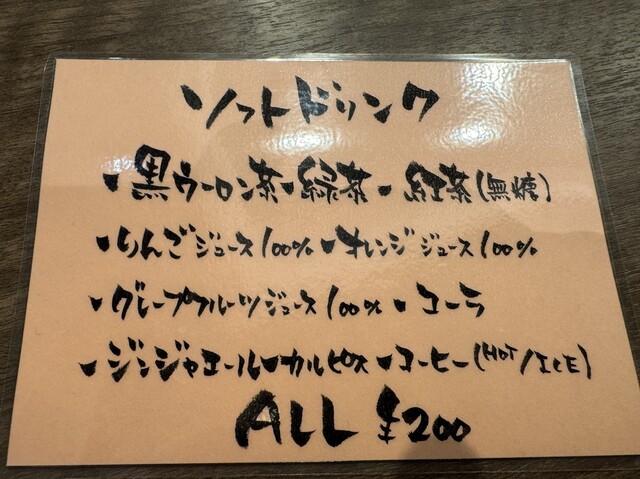 ソフトドリンク
・黒ウーロン茶・緑茶・紅茶(無糖)
・りんごジュース100%・オレンジジュース100%
・グレープフルーツジュース100%・コーラ
・ジンジャエール・カルピス・コーヒー(HOT/ICE)
ALL ¥200